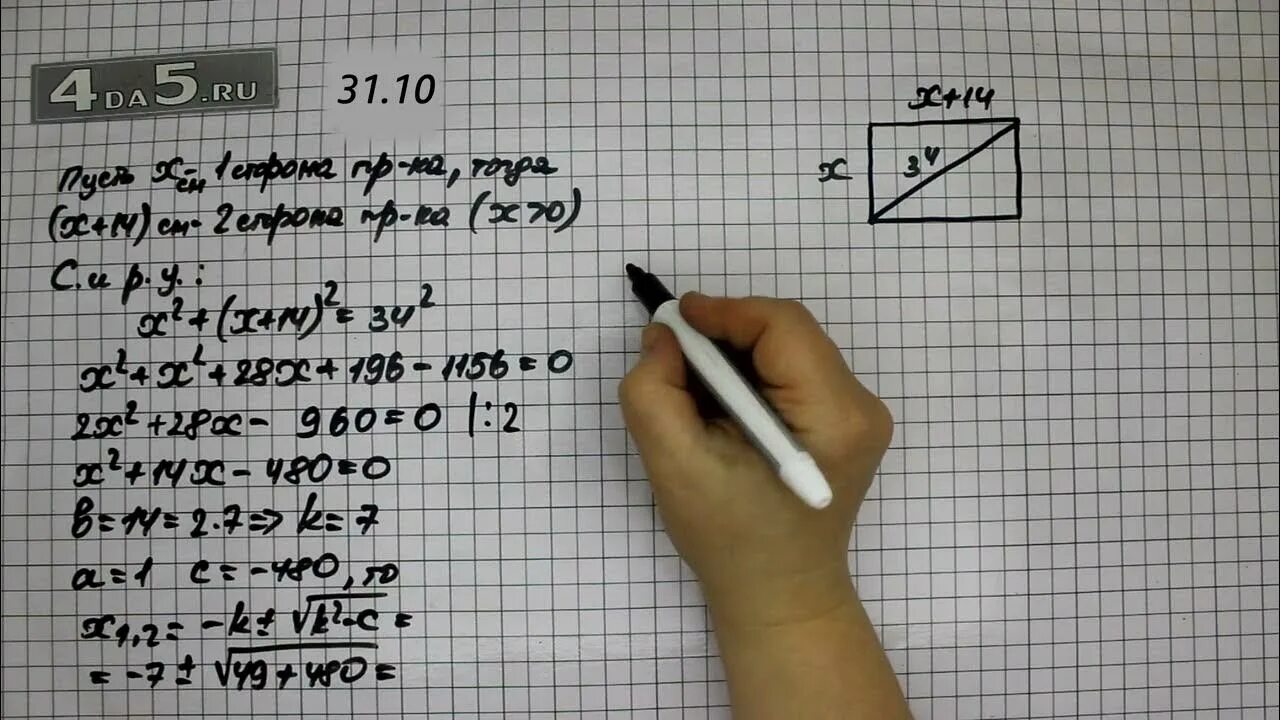 4DA5.RU
31.10
Пусть x см - 1 сторона пр-ка, тогда
(x+14) см - 2 сторона пр-ка (x>0)
С. и р. у.:
x²+(x+14)²=34²
x²+x²+28x+196-1156=0
2x²+28x- 960=0 |:2
x²+14x-480=0
b=14=2·7=>k=7
a=1 c=-480, то
x₁,₂=-k±√k²-c=
=-7±√49+480=
x+14
x
34